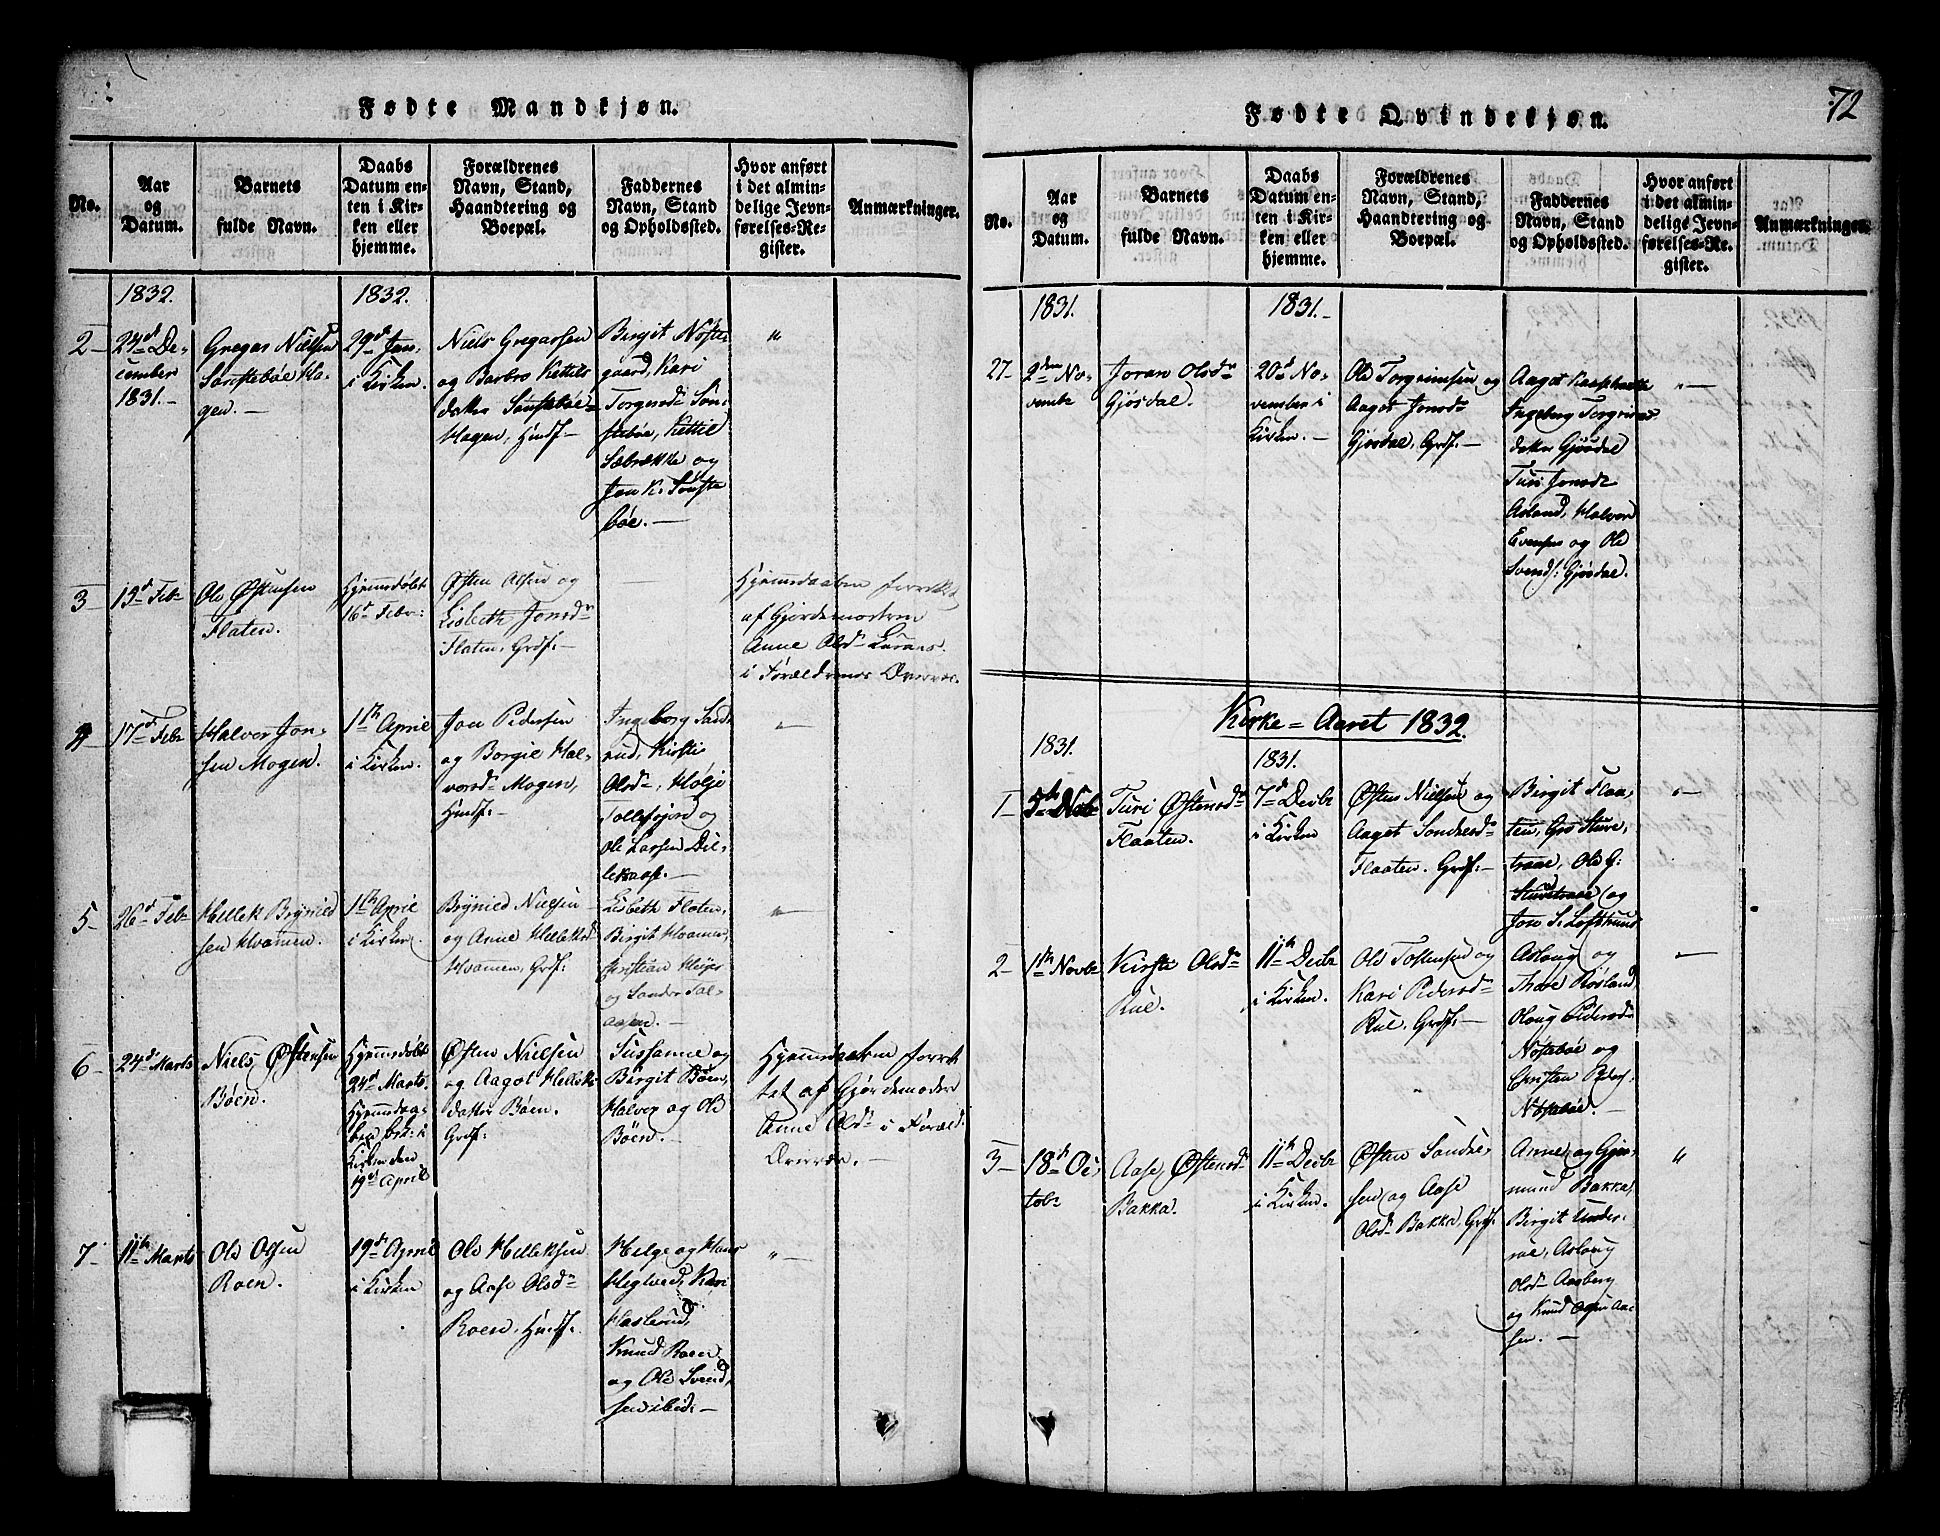 Fødte Mandkjøn.
No.
Aar
og
Datum.
Barnets
fulde Navn.
Daabs
Datum en-
ten i Kir-
ken eller
hjemme.
Forældrenes
Navn, Stand,
Haandtering og
Boepæl.
Faddernes
Navn, Stand
og Opholdssted.
Hvor anført
i det almin-
delige Jevn-
førelses-Re-
gister.
Anmærkninger.
1832.
1832.
2
24d De-
cember
1831.
Gregar Nielsen
Sønstebøe Ha-
gen.
29d Jan.
i Kirken.
Niels Gregarsen
og Barbro Kettils
datter Sønstebøe-
Hagen, Huusf.
Birgit Nøste-
gaard, Kari
Torgersd: Søn-
stebøe, Kettil
Sæbrække og
Jon K. Sønste
bøe.
3
19d Feb
Ole Østensen
Flaten.
Hjemmedøbt
16d Febr:
Østen Olsen og
Lisbeth Jonsd
Flaten, Grdf:
Hjemmedaaben forrettet
af Gjordemoderen
Anne Olsd
i Forældrenes Overvær.
4
17d Febr
Halvor Jon-
sen Mogen.
1th April
i Kirken.
Jon Pedersen
og Borgil Hal-
vorsd Mogen,
Huusf:
Ingeborg Sand-
rud, Kirsti
Olsd, Hølje
Tollefsjord og
Ole Larsen Dil-
lekaase.
5
26d Feb
Hellek Brynild
sen Hvamen.
1th April
i Kirken.
Brynild Nielsen
og Anne Helleksd
Hvamen, Grdf:
Lisbeth Flaten,
Birgit Hvamen,
Christian
og Sander Fal-
aasen.
6
24d Marts
Niels Østensen
Bøen.
Hjemmedøbt
24d Marts.
Hjemmedaa-
ben i
Kirken den
19d April
Østen Nielsen
og Aagot Helleks
datter Bøen.
Grdf:
Sussanne og
Birgit Bøen,
Halvor og Ole
Bøen.
Hjemmedaaben forret
tet af Gjordemoder
Anne Olsd i Foræld:
Overvær.
7
11th Marts
Ole Olsen
Roen.
19d April
i Kirken
Ole Helleksen
og Aase Olsd
Roen, Huusf.
Helge og
Kari
Haslerud,
Knud Roen
og Ole Svend-
sen ibid.
Fødte Qvindekjøn.
72
No.
Aar
og
Datum.
Barnets
fulde Navn.
Daabs
Datum en-
ten i Kir-
ken eller
hjemme.
Forældrenes
Navn, Stand,
Haandtering og
Boepæl.
Faddernes
Navn, Stand
og Opholdssted.
Hvor anført
i det almin-
delige Jevn-
førelses-Re-
gister.
Anmærkninger.
1831.
1831.
27
2den No-
vembr
Joran Olsd
Gjøsdal.
20d No-
vember i
Kirken.
Ole Torgrimsen og
Aagot Jonsd
Gjøsdal, Grdf.
Aagot
Ingebug Torgrims
datter Gjøsdal
Turi Jonsd
Aasland, Halvor
Evensen og Ole
Svends: Gjøsdal.
Kirke-Aaret 1832.
1831.
1831.
1
5th Nobr
Turi Østensd
Flaaten.
7d Decbr
i Kirken
Østen Nielsen og
Aagot Sondresd
Flaaten, Grdf:
Birgit Flaa-
ten, Gro Sture-
traae, Ole G:
Sturetraae og
Jon S. Lofthuus
2
1th Novbr
Kirsti Olsd
Rue.
11th Decbr
i Kirken.
Ole Tostensen og
Kari Pedersd
Rue, Grdf:
Aslaug og
Thore Røsland,
Olaug Pedersd
Nøstebøe og
Christen Peders:
Nøstebøe.
3
18d Oc-
tobr
Aase Østensd
Bakka.
11th Decbr
i Kirken.
Østen Sondre-
sen og Aase
Olsd Bakka, Grdf.
Anne og Gjer-
mund Bakka,
Birgit Under-
raae, Aslaug
Olsd Aasberg
og Knud Olsen Aa-
sen.